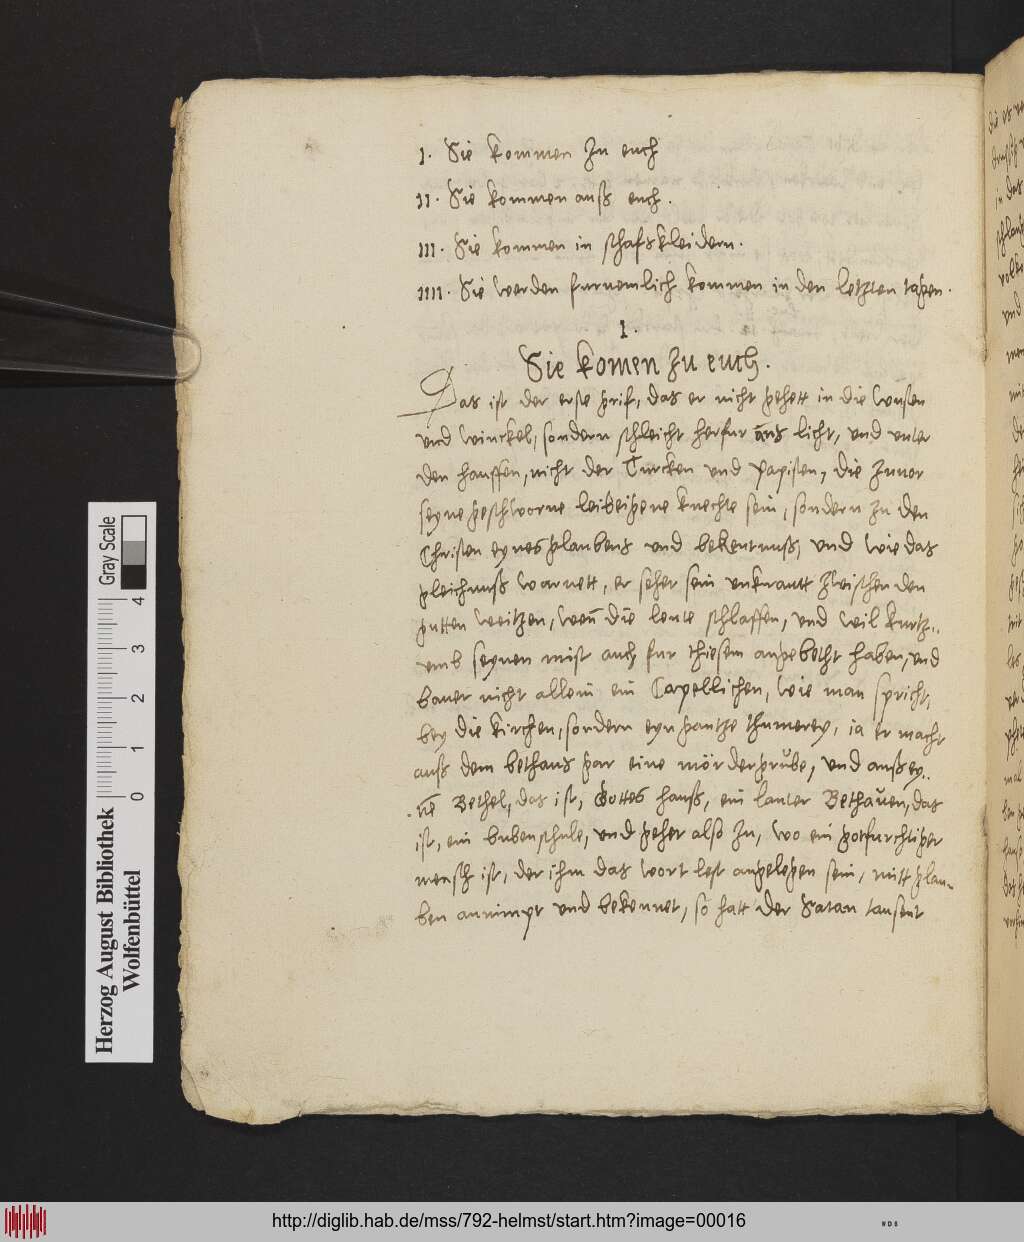 I. Sie kommen zu euch
II. Sie kommen auß euch.
III. Sie kommen in schafskleidern.
IIII. Sie werden furnemlich kommen in den letzten tagen.
I.
Sie komen zu euch.
Das ist der erste grif, das er nicht gehett in die wusten
vnd winckel, sondern schleicht herfur ans licht, vnd vnter
den hauffen, nicht der Turcken vnd Papisten, die zuuor
seyne geschworne leibeigene knechte sein, sondern zu den
Christen eynes glaubens vnd bekentnuß, vnd wie das
gleichnuß warnett, er seher sein vnkrautt zwischen den
gutten weitzen, wen̄ die leute schlaffen, vnd wil kurtz..
vmb seynen mist auch fur thiesem angebetht haben, vnd
bauer nicht allein ein Capellichen, wie man spricht,
bey die kirchen, sondern eyn gantze thumerey, ia er macht
auß dem bethaus gar eine mördergrube, vnd auß ey..
nē Bethel, das ist, Gottes hauß, ein lauter Bethauen, das
ist, ein bubenschule, vnd geher also zu, wo ein gotfurchtiger
mensch ist, der ihm das wort lest angelegen sein, mitt glau-
ben annimpt vnd bekennet, so hatt der Satan tausent
Herzog August Bibliothek
Wolfenbüttel
0 1 2 3 4
Gray Scale
http://diglib.hab.de/mss/792-helmst/start.htm?image=00016